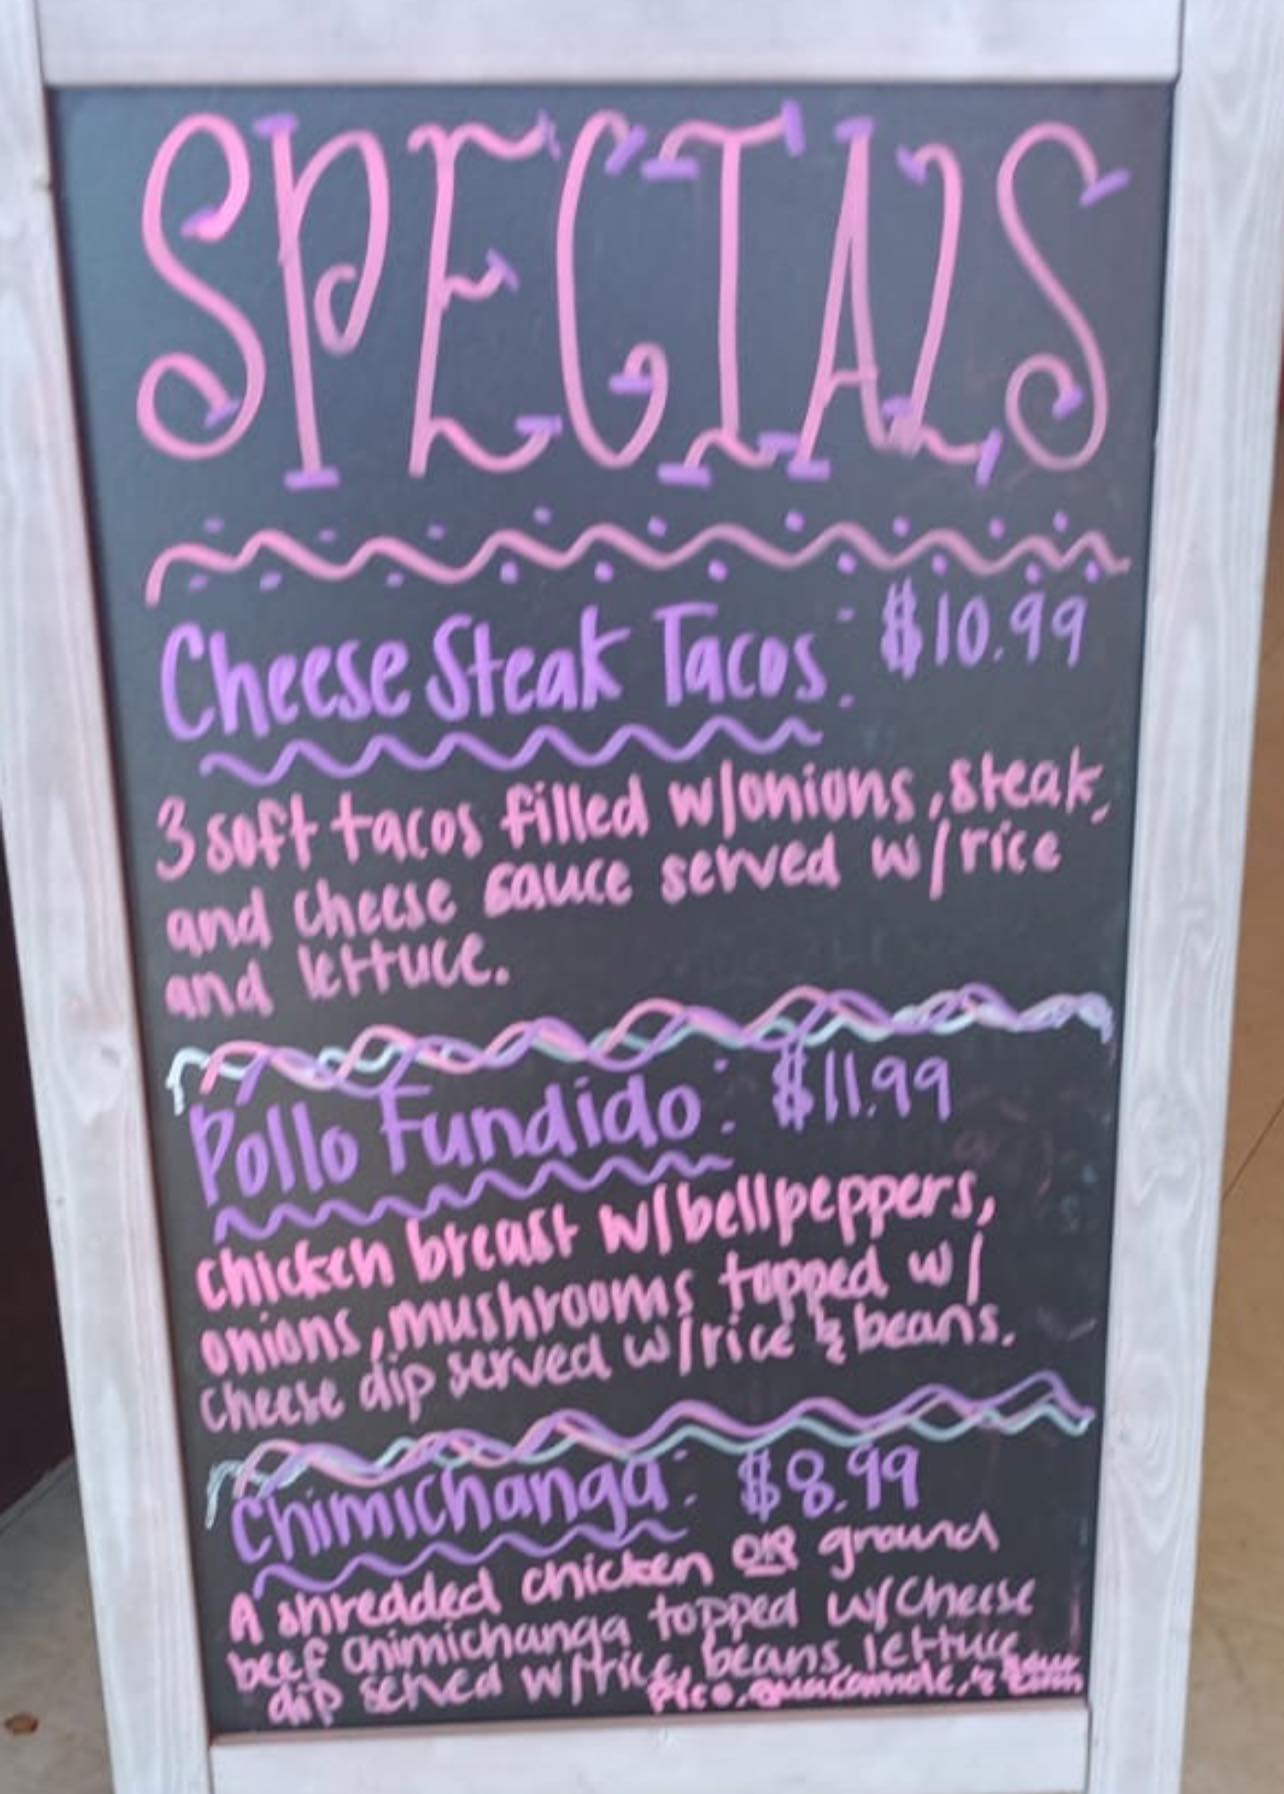 SPECIALS
Cheese Steak Tacos: $10.99
3 soft tacos filled w/onions, steak,
and cheese sauce served w/rice
and lettuce.
Pollo Fundido: $11.99
chicken breast w/bellpeppers,
onions, mushrooms topped w/
cheese dip served w/rice & beans.
Chimichanga: $8.99
A shredded chicken OR ground
beef chimichanga topped w/cheese
dip served w/rice, beans, lettuce
pico, guacamole, & sour cream